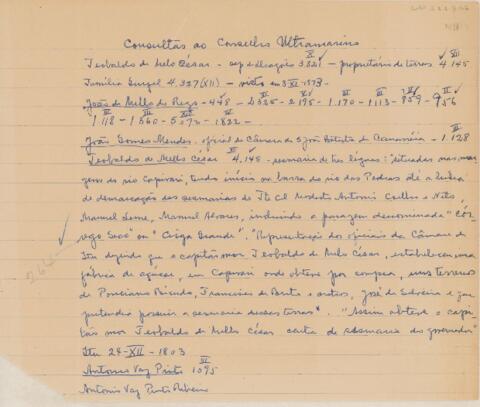 Consultas ao Conselho Ultramarino
Teobaldo de Melo César - sup. de alegações 3.821 X - proprietário de terras 4.145 XII
Família Gurgel 4.337 (XII) - visto em 3 XI -
João de Mello do Rego - 448 - 2325 - 2195 - 1.170 - 1113 - 859 - 956
1118 - 1560 - - 1822 -
João Gomes Mendes, oficial da Câmara de S João Batista de Cananéia - 1128
Teobaldo de Mello César 4.145 - sesmaria de tres léguas: "situadas nas mar-
gens do rio Capivari, tendo início na barra do rio das Pedras até a linha
de demarcação das sesmarias do Te Cel Modesto Antonio Coelho e Neto,
Manuel Leme, Manuel Alvares, incluindo a paragem denominada "Cor-
rego Seco" ou "Caiga Grande". "Representação dos oficiais da Câmara de
Itu dizendo que o capitão mor Teobaldo de Melo César, estabeleceu uma
fábrica de açucar, em Capivari onde obteve por compra, uns terrenos
de Ponciano Ricudo, Francisco de Brito e outros, José da Silveira e que
pretendia possuir a sesmaria dessas terras". "Assim obteve o capi-
tão mor Teobaldo de Mello César carta de sesmaria do governador"
Itu 24-XII-1803
Antonio Vaz Pinto 1095 VI
Antonio Vaz Pinto Ribeiro